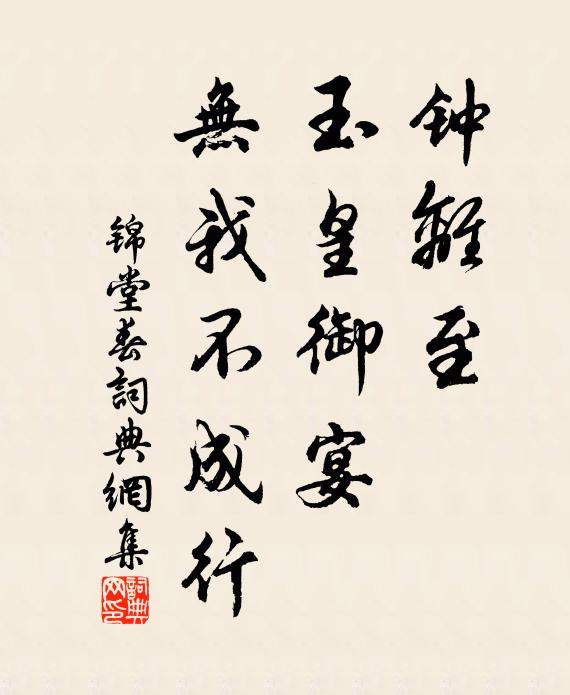 钟離至
玉皇御宴
無我不成行
锦堂春詞典網集
詞典网印